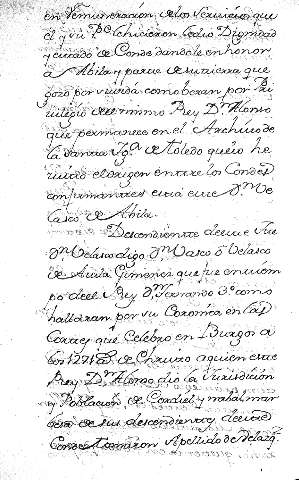 en remuneracion de los Servicios que
el y su P.e hicieron dio Dignidad
y estado de Conde dandole en honor
a Abila y parte de su tierra que
gozo por su vida como beran por Pri
vilegio del mismo Rey D.n Alonso
que permanece en el Archivo de
la Santa Yg.a de Toledo que io he
visto el original entre los Condes
confirmantes esta este D.n Ve
lasco de Abila.
Descendiente de este fue
D.n Velasco digo D.n Vasco o Velasco
de Avila Gimenez que fue en tiem
po del Rey D.n Fernando 3.o como
hallaran por su Coronica en las
Cortes que Celebro en Burgos a
de Christo a quien este
Rey D.n Alonso dio la Jurisdicion
y Poblacion de Cardiel, y nabal mar
de sus descendientes de este
Conde tomaron Apellido de Velazq.